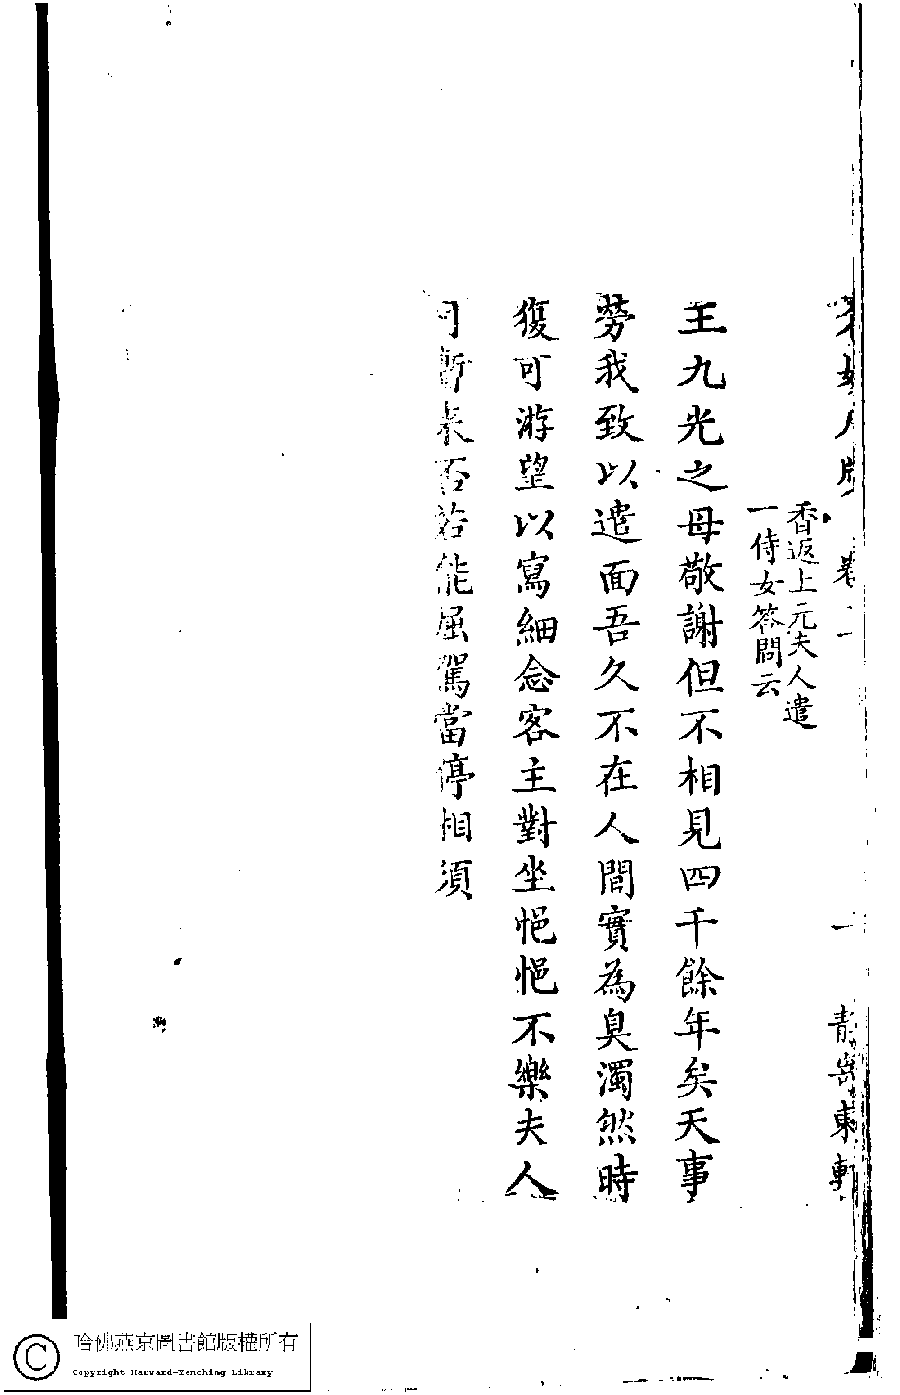 卷
一
東軒
香返上元夫人遣
一侍女答問云
王九光之母敬謝但不相見四千餘年矣天事
勞我致以遣面吾久不在人間實為臭濁然時
復可游望以寫細念客主對坐悒悒不樂夫人
可暫来否若能屈駕當停相須
哈佛燕京圖書館版權所有
Copyright Harvard-Yenching Library